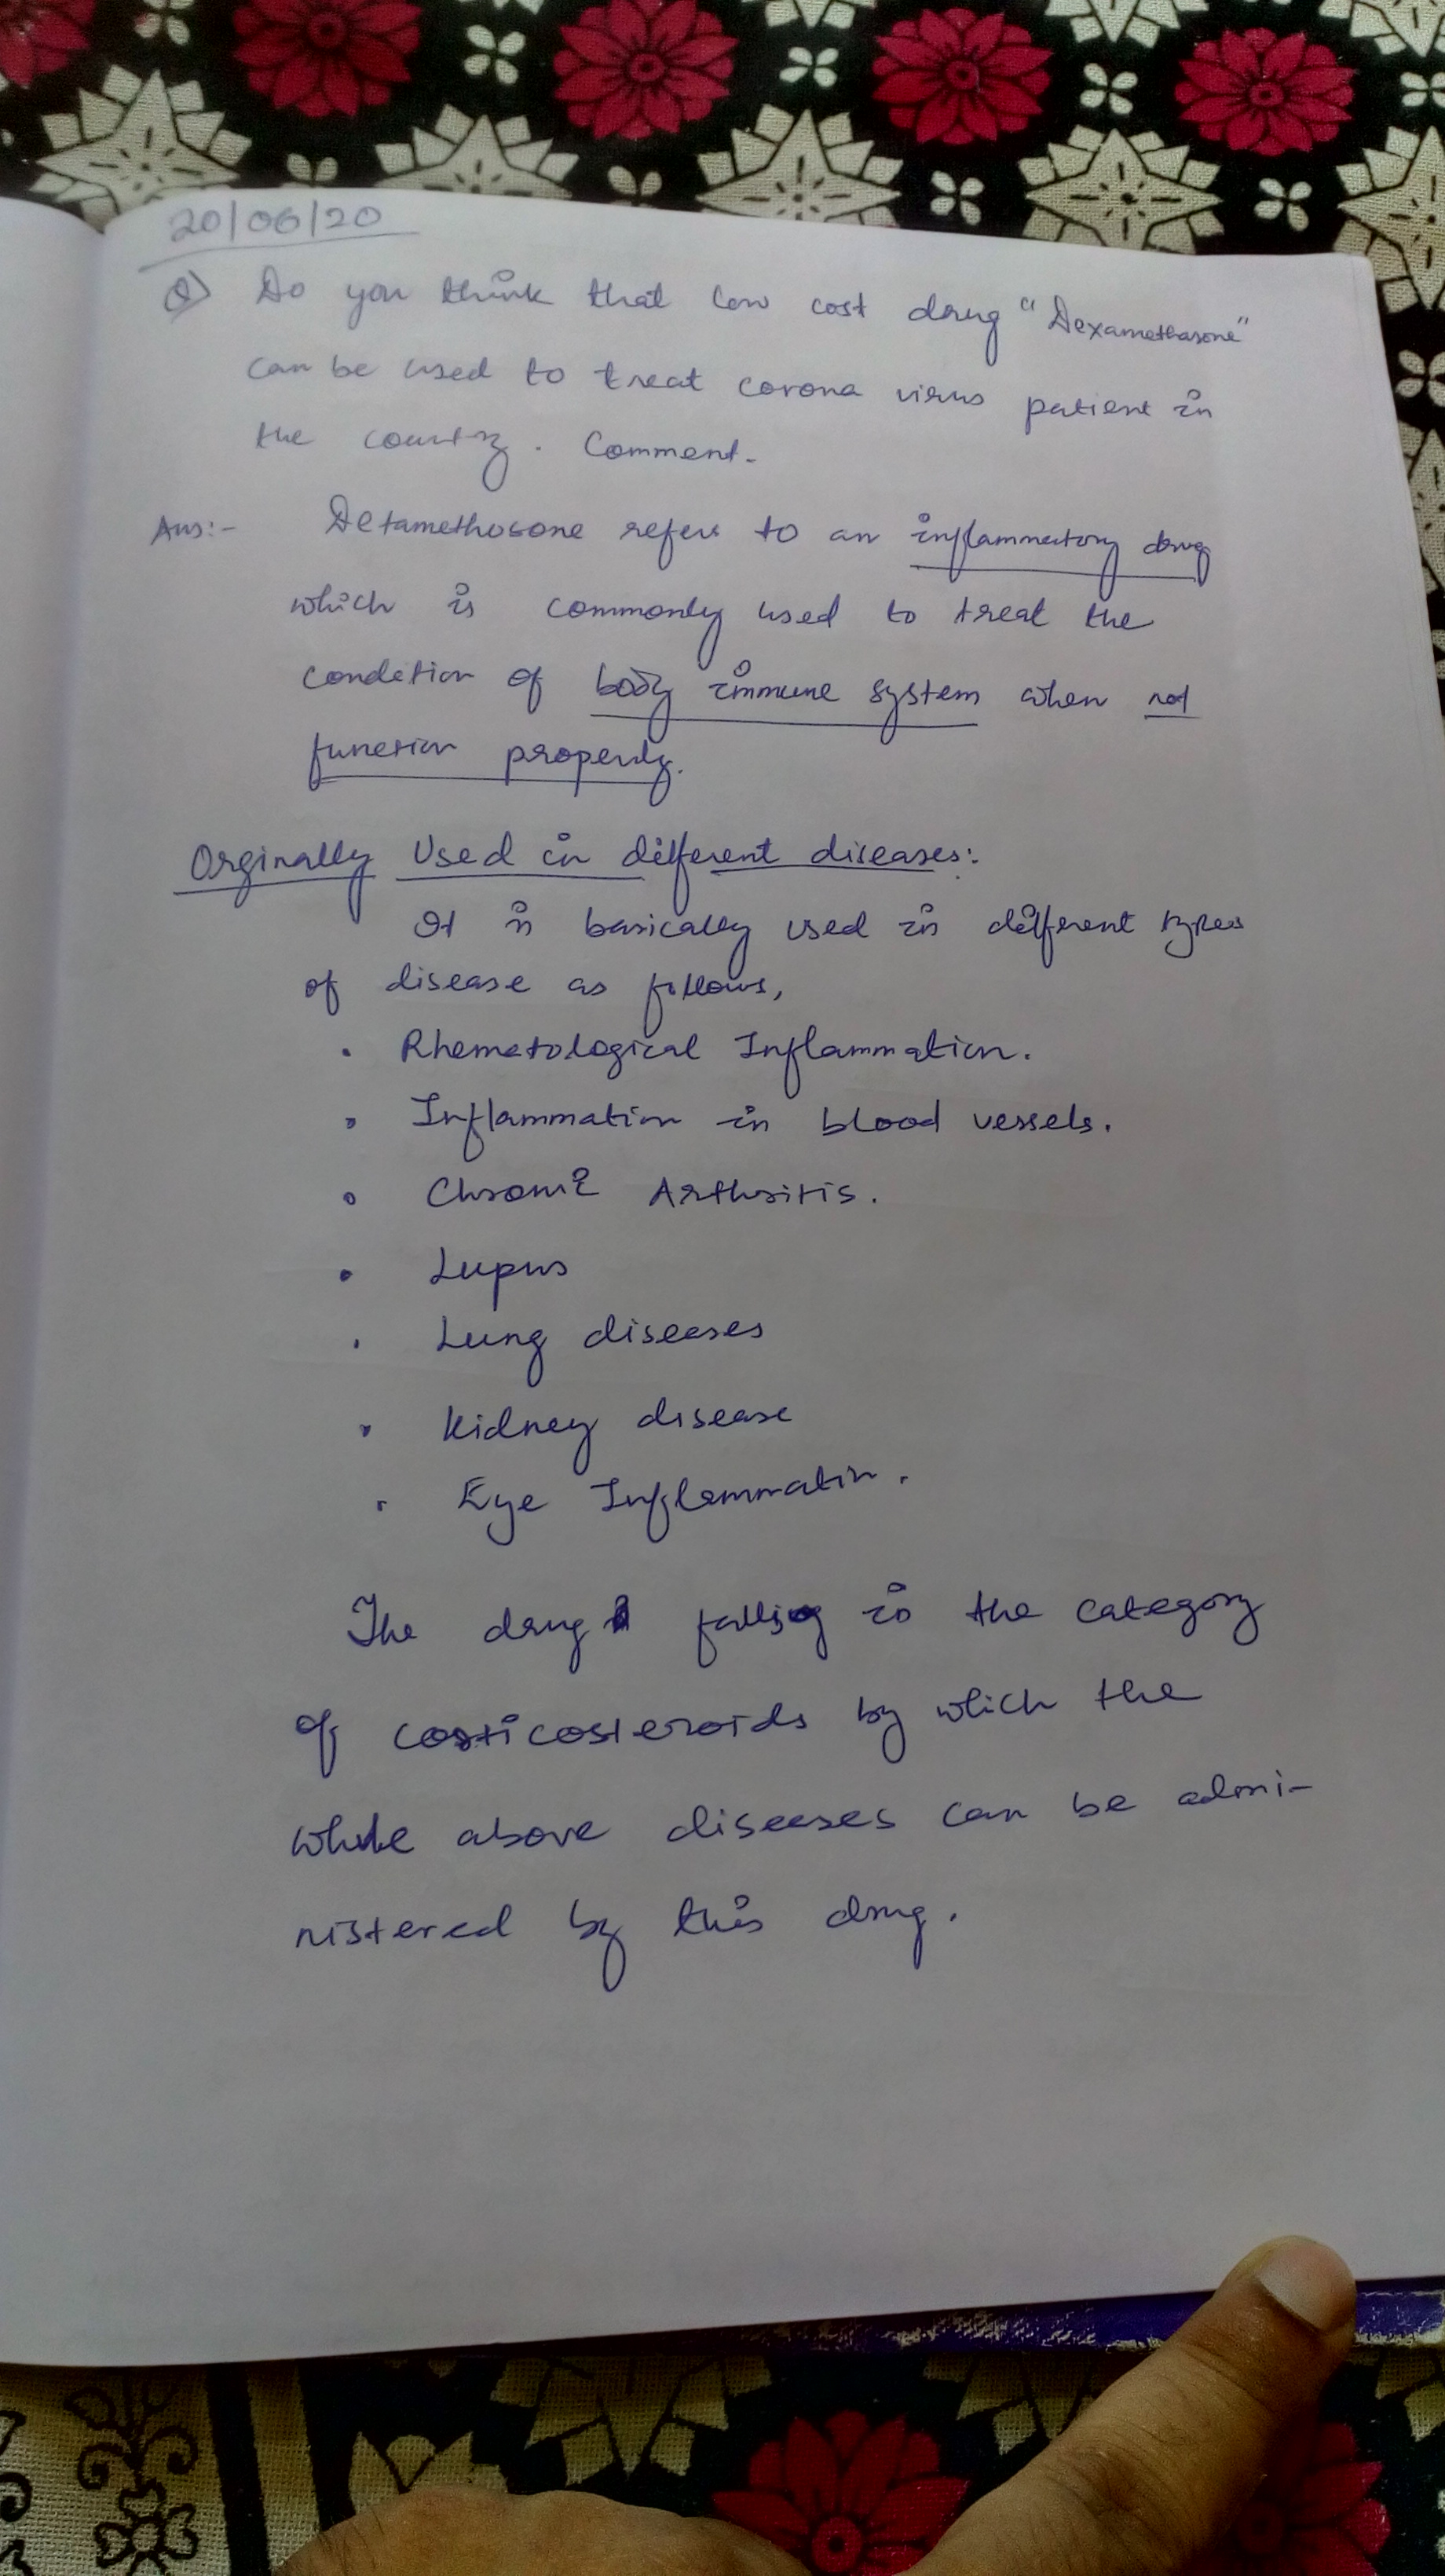 20/06/20
Q) Do you think that low cost drug "Dexamethasone"
can be used to treat corona virus patient in
the country. Comment.
Ans:- Detamethosone refers to an inflammatory drug
which is commonly used to treat the
condition of body immune system when not
function properly.
Orginally Used in different diseases:
It is basically used in different types
of disease as follows,
• Rhemetological Inflammation.
• Inflammation in blood vessels.
• Chronic Arthritis.
• Lupus
• Lung diseases
• Kidney disease
• Eye Inflammation.
The drug falls in the category
of corticosteroids by which the
whole above diseases can be admi-
nistered by this drug.